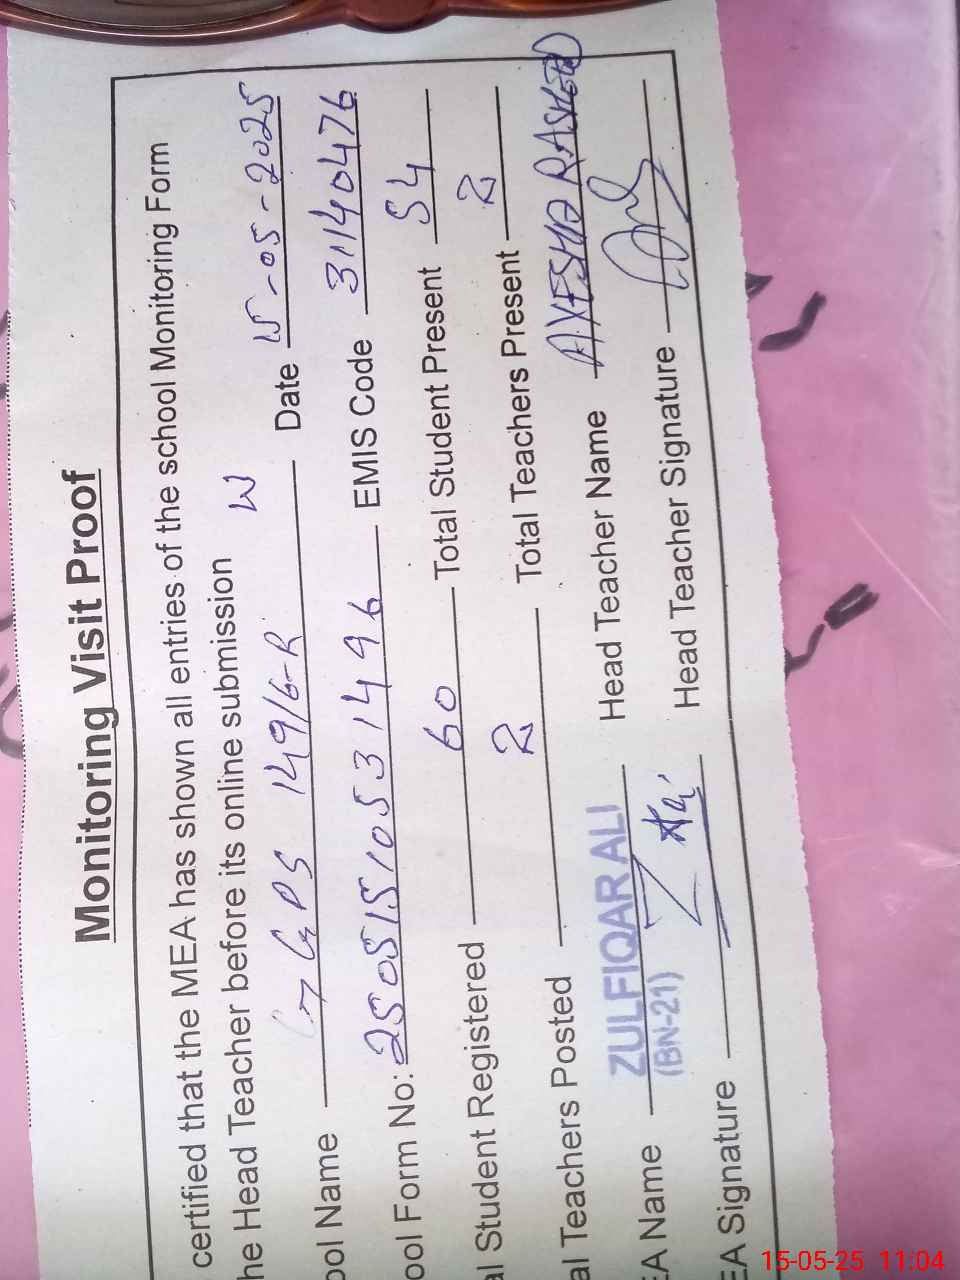 Monitoring Visit Proof
certified that the MEA has shown all entries of the school Monitoring Form
he Head Teacher before its online submission
ool Name GGPS 149/6-R W Date 15-05-2025
ool Form No: 250515105314 96 EMIS Code 31140476
al Student Registered 60 Total Student Present 54
al Teachers Posted 2 Total Teachers Present 2
EA Name ZULFIQAR ALI Head Teacher Name AYESHA RASHEED
(BN-21)
EA Signature Head Teacher Signature
15-05-25 11:04